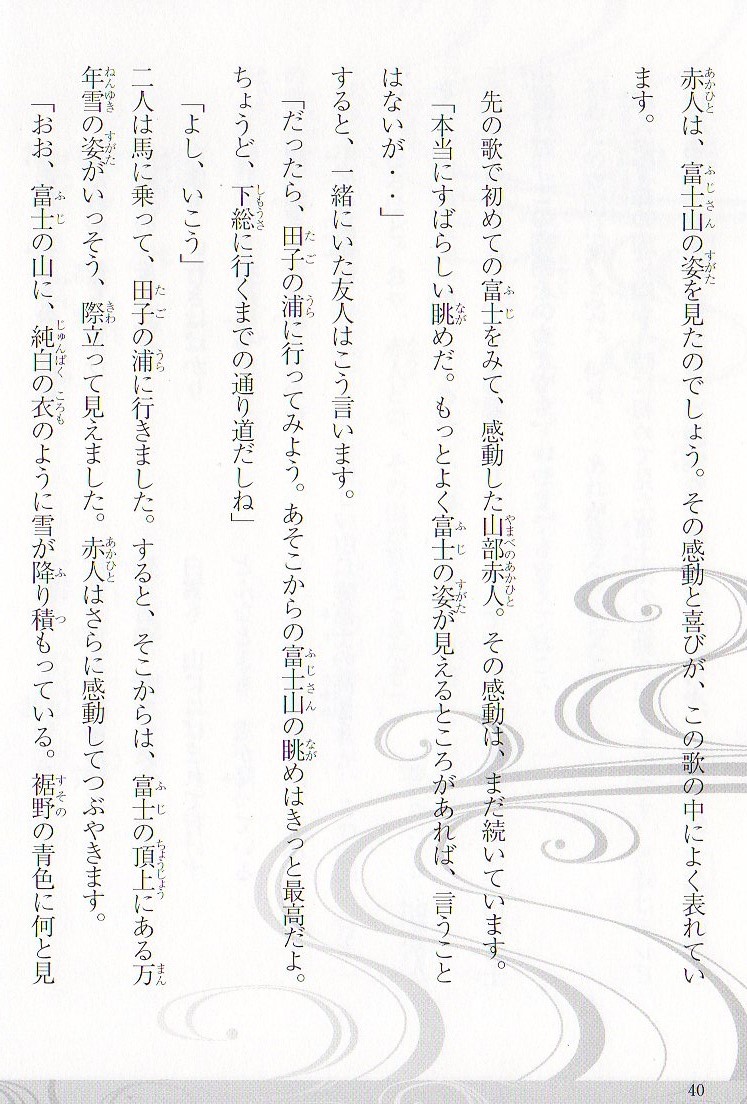 赤人は、富士山の姿を見たのでしょう。その感動と喜びが、この歌の中によく表れてい
ます。
先の歌で初めての富士をみて、感動した山部赤人。その感動は、まだ続いています。
「本当にすばらしい眺めだ。もっとよく富士の姿が見えるところがあれば、言うこと
はないが・・」
すると、一緒にいた友人はこう言います。
「だったら、田子の浦に行ってみよう。あそこからの富士山の眺めはきっと最高だよ。
ちょうど、下総に行くまでの通り道だしね」
「よし、いこう」
二人は馬に乗って、田子の浦に行きました。すると、そこからは、富士の頂上にある万
年雪の姿がいっそう、際立って見えました。赤人はさらに感動してつぶやきます。
「おお、富士の山に、純白の衣のように雪が降り積もっている。裾野の青色に何と見
40